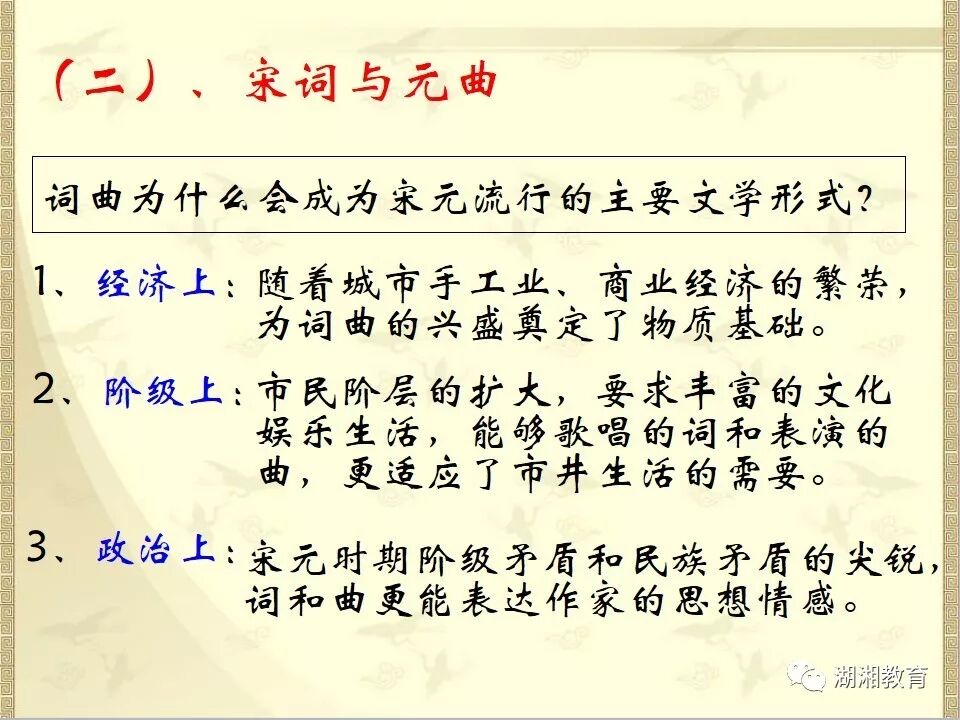 （二）、宋词与元曲
词曲为什么会成为宋元流行的主要文学形式?
1、经济上：随着城市手工业、商业经济的繁荣，
为词曲的兴盛奠定了物质基础。
2、阶级上：市民阶层的扩大，要求丰富的文化
娱乐生活，能够歌唱的词和表演的
曲，更适应了市井生活的需要。
3、政治上：宋元时期阶级矛盾和民族矛盾的尖锐，
词和曲更能表达作家的思想情感。
湖湘教育